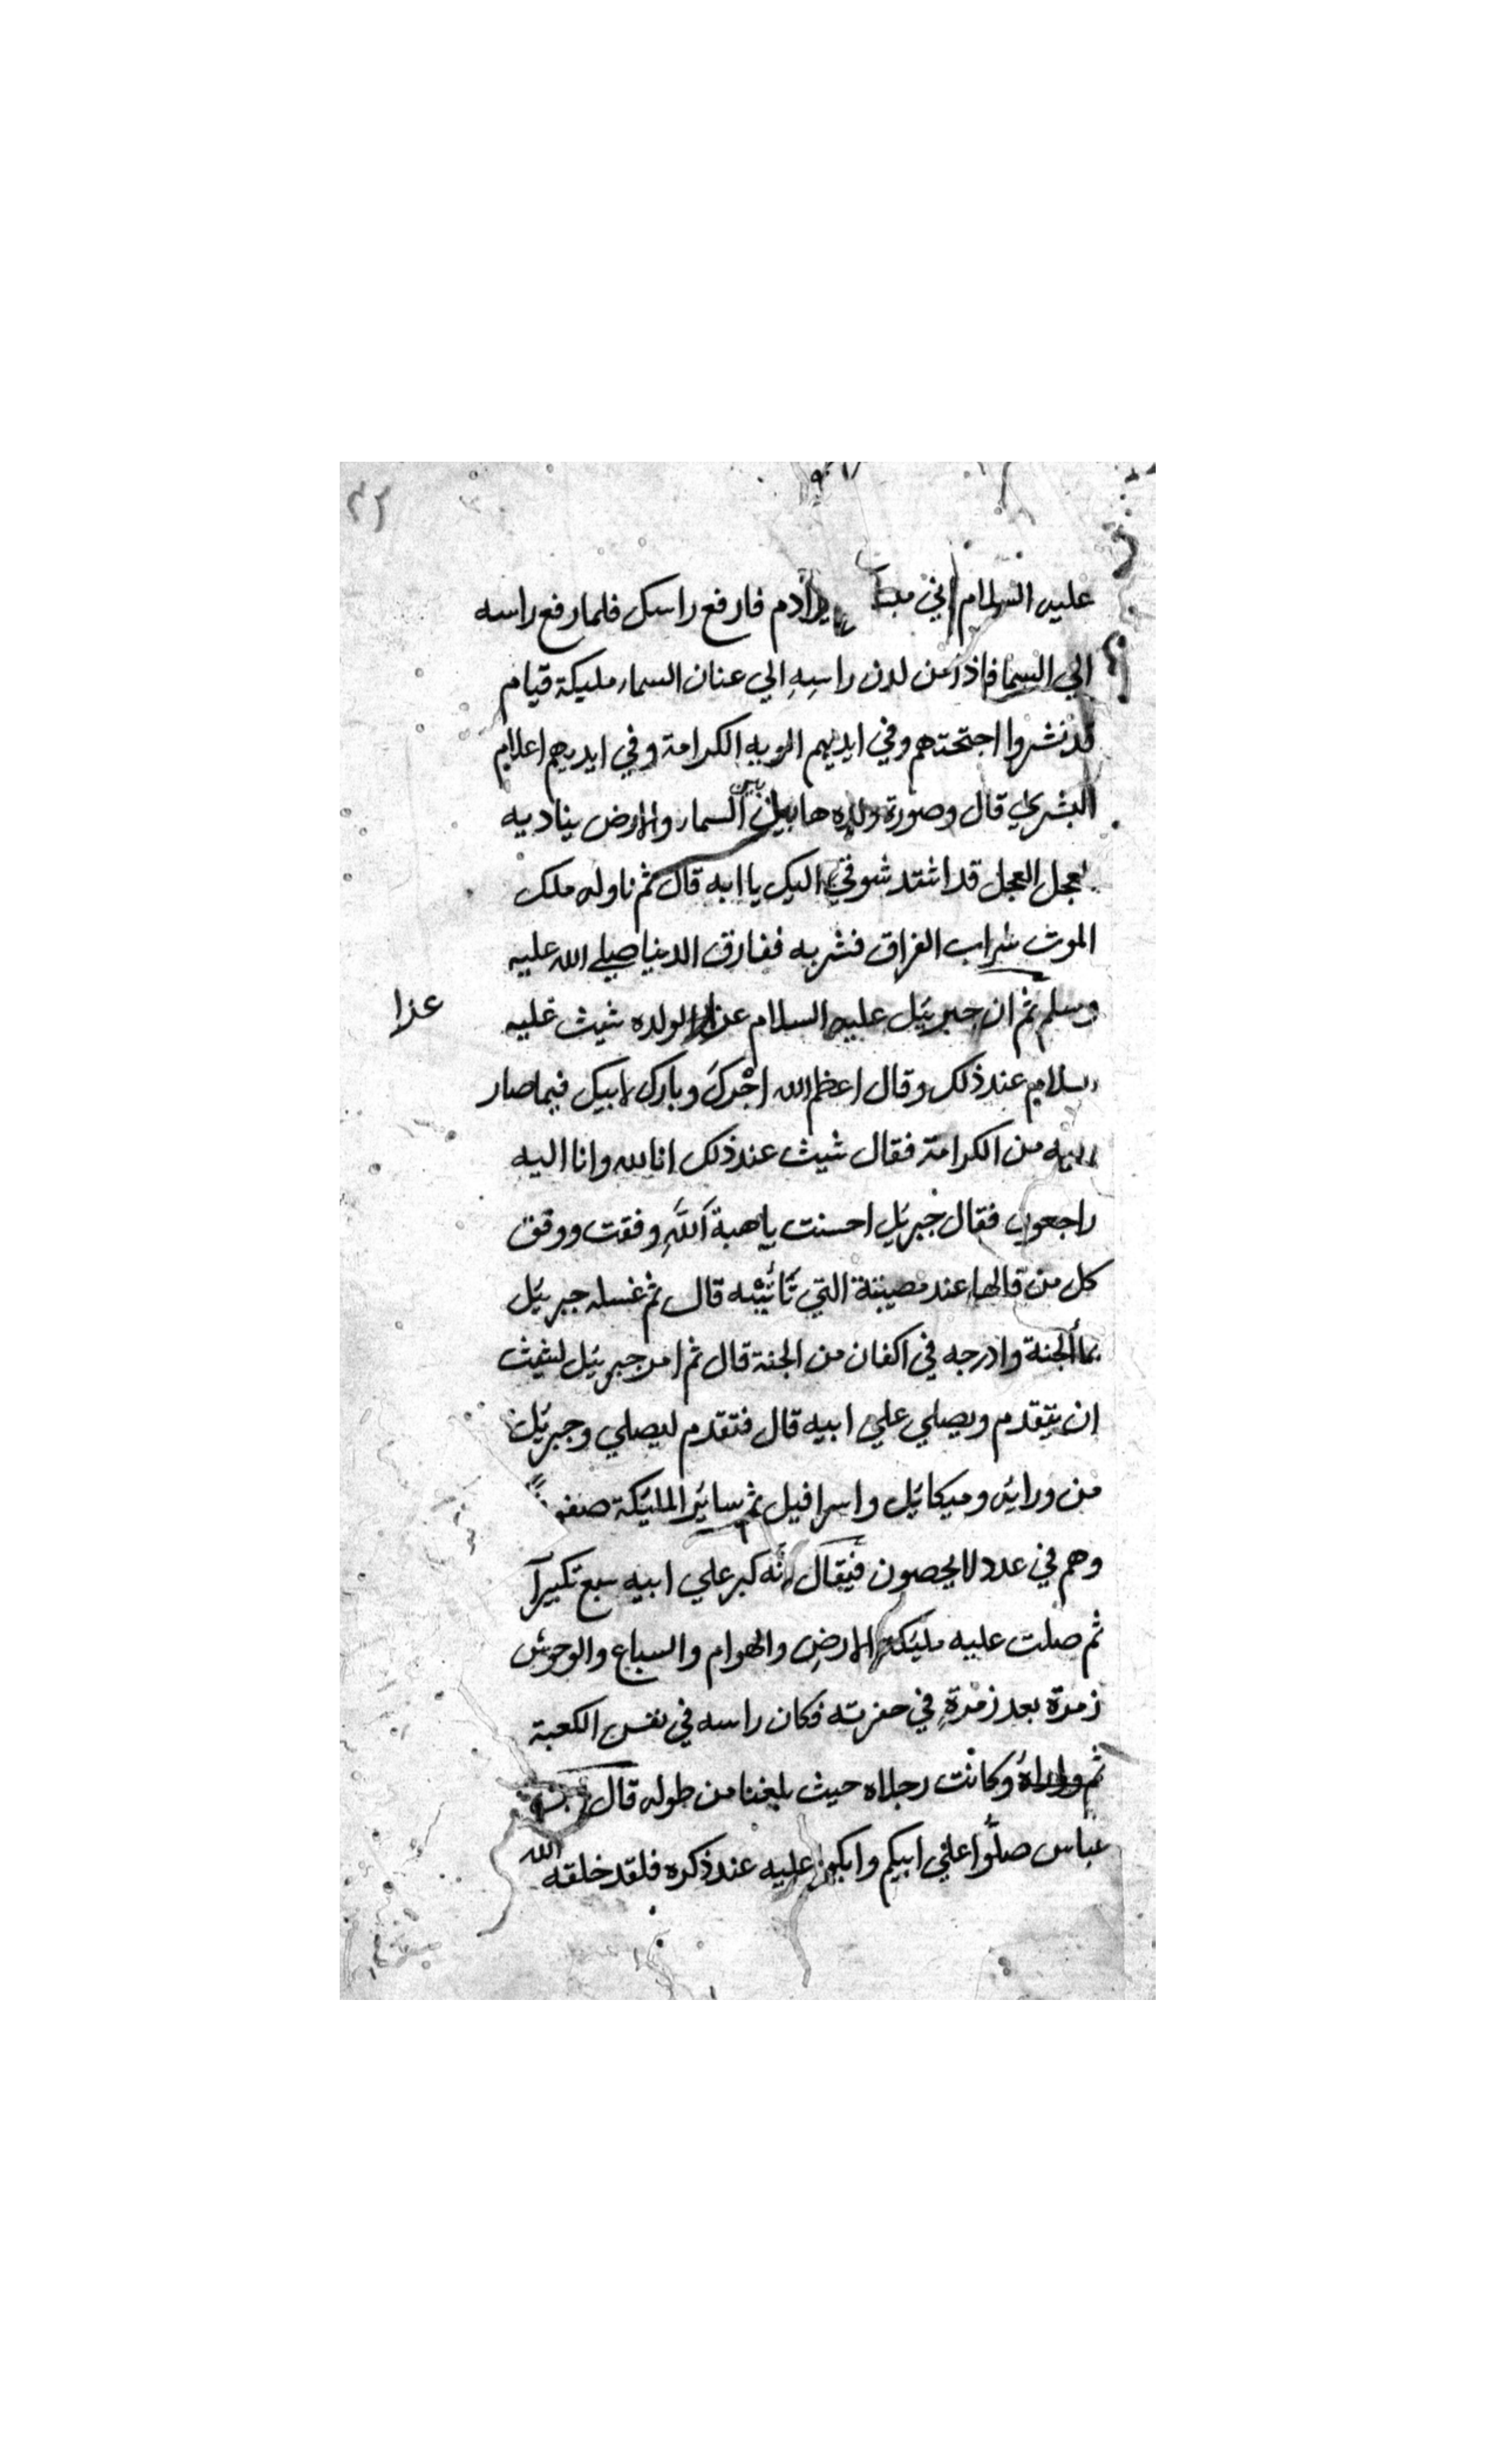 ٣٢
عليه السلام اني يا ادم فارفع راسك فلما رفع راسه
الي السما فاذا من لدن راسِهِ الي عنان السماء مليكة قيام
قد نشروا اجنحتهم وفي ايديهم الويه الكرامة وفي ايديهم اعلام
البشري قال وصورة ولده هابيل بين السماء والارض يناديه
العجل العجل قد اشتد شوقي اليك يا ابه قال ثم ناوله ملك
الموت شراب الفراق فشربه ففارق الدنيا صلي الله عليه
وسلم ثم ان جبرئيل عليه السلام لولده شيث عليه
عزا
السلام عند ذلك وقال اعظم الله اجْركَ وبارك لابيك فيما صار
اليه من الكرامة فقال شيث عند ذلك انا لله وانا اليه
راجعون فقال جبرئيل احسنت يا هبة اَللّهِ وفقت ووفق
كل من قالها عند مصيبتة التي قال ثم غسله جبرئيل
بمأ الجنة وادرجه في اكفان من الجنة قال ثم امر جبرئيل لشيث
ان يتقدم ويصلي علي ابيه قال فتقدم ليصلي وجبرئيل
من ورايه وميكائيل واسرافيل ثم سائر المليكة صفوفاً
وهم في عدد لا يحصون فيقال انّه كبر علي ابيه سبع تكبيرآ
ثم صلت عليه مليكة الارضِ والهوام والسباع والوحوش
زمرة بعد زمرةٍ في حفرته فكان راسه في نفس الكعبة
ثم واراهُ وكانت رجلاه حيث بلغنا من طوله قال ابن
عباس صلّوا علي ابيكم وابكوا عليه عند ذكره فلقد خلقه الله